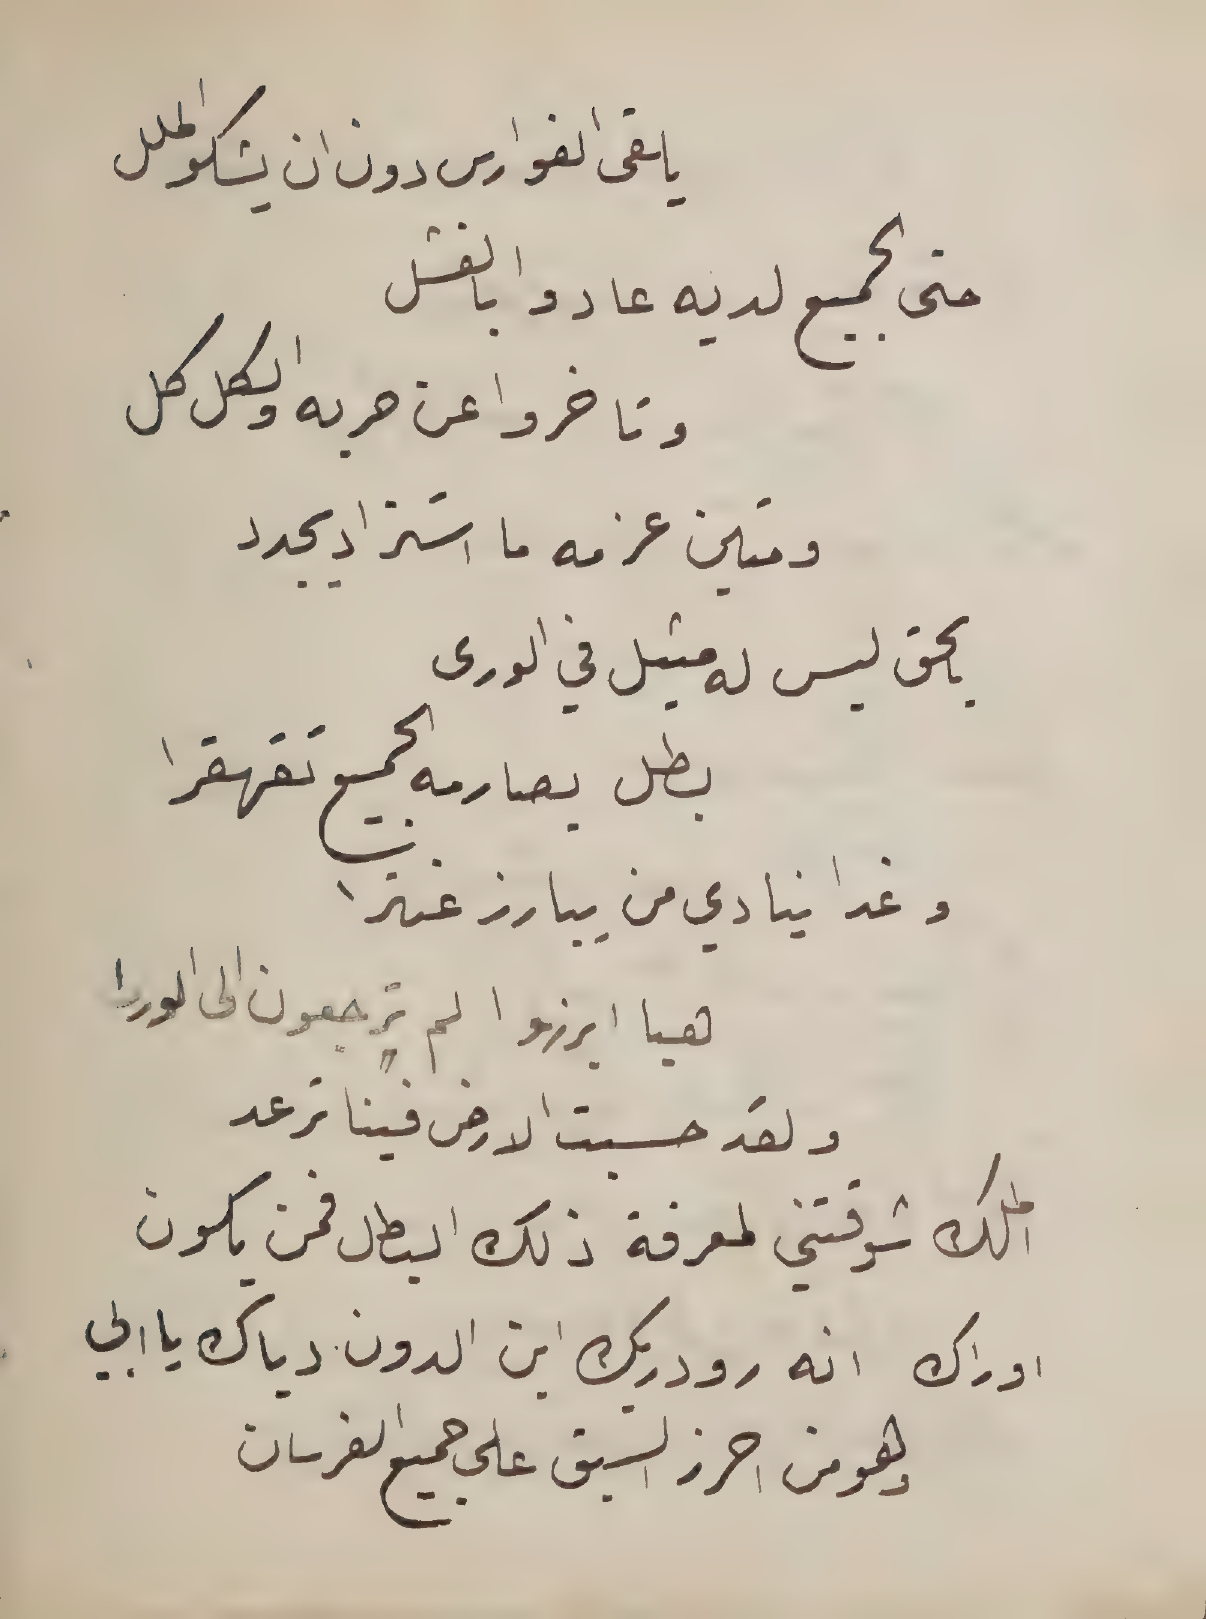 يلقى الفوارس دون ان يشكو الملل
حتى الجميع لديه عادوا بالفشل
وتاخروا عن حربه والكل كل
ومتين عزمه ما استزاد يجدد
بالحق ليس له مثيل في الورى
بطل بصارمه الجميع تقهقرا
وغدا ينادي من يبارز عنترا
هيا ابرزوا لم ترجعون الى الورا
ولقد حسبت الارض فينا ترعد
الملك شوقتني لمعرفة ذلك البطل فمن يكون
اوراك انه رودريك ابن الدون دياك يا ابي
وهو من احرز السبق على جميع الفرسان